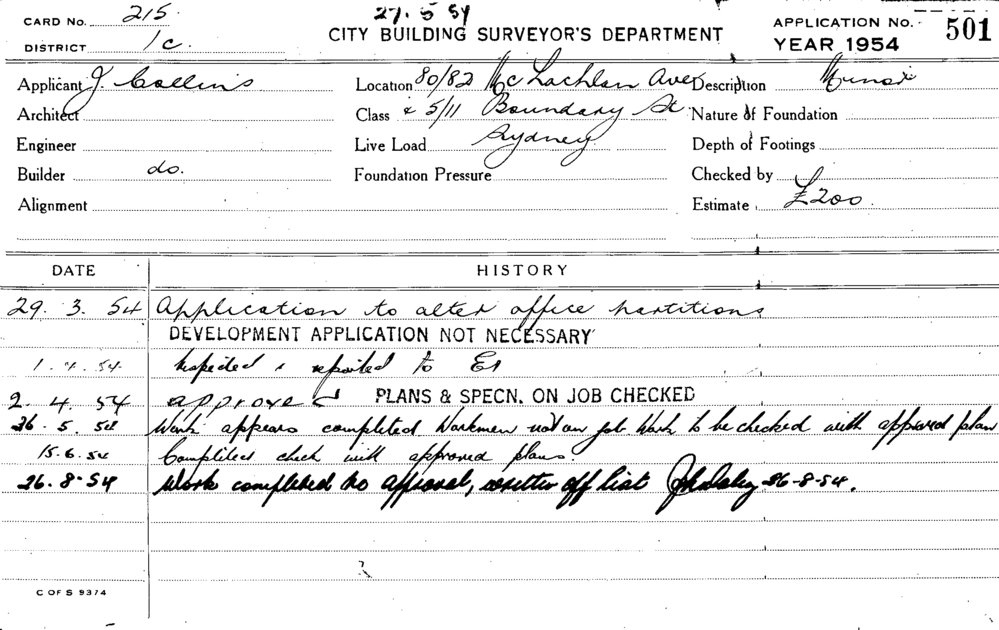 CARD No. 215
27. 5 54
DISTRICT 1c.
CITY BUILDING SURVEYOR'S DEPARTMENT
APPLICATION No. 501
YEAR 1954
Applicant J. Collins
Location 80/82 McLachlan Ave
Description Minor
Architect
Class & 5/11 Boundary St.
Nature of Foundation
Engineer
Live Load Sydney
Depth of Footings
Builder do.
Foundation Pressure
Checked by
Alignment
Estimate £200.
DATE HISTORY
29. 3. 54 Application to alter office partitions
DEVELOPMENT APPLICATION NOT NECESSARY
1. 4. 54. Inspected & reported to
2. 4. 54 approved PLANS & SPECN. ON JOB CHECKED
26. 5. 54 Work appears completed Workmen not on job Work to be checked with approved plan
15. 6. 54 Completed check with approved plans.
26-8-54 Work completed to approval, written off list 26-8-54.
C OF S 9374